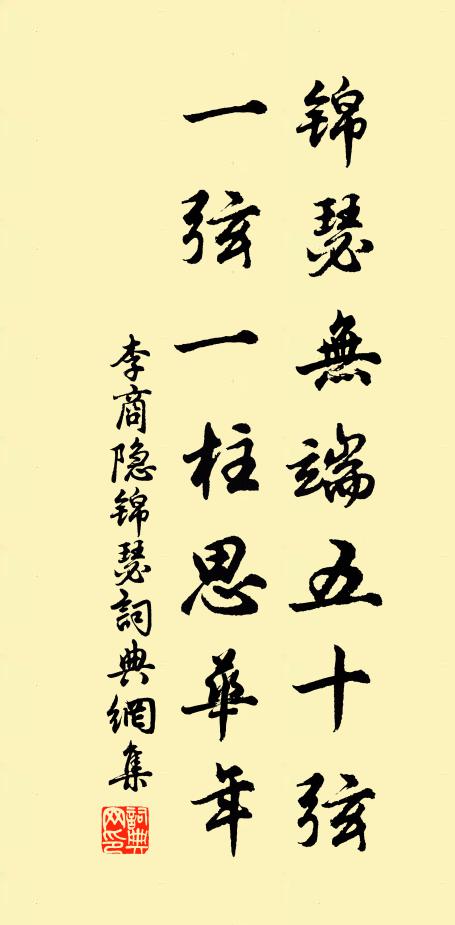 锦瑟無端五十弦
一弦一柱思華年
李商隐锦瑟詞典網集
詞典网印